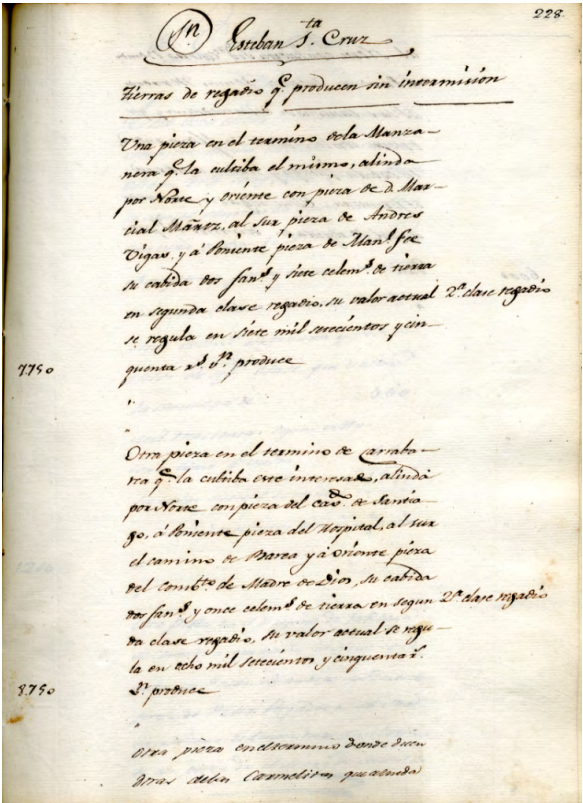 228.
Sn Esteban S.ta Cruz
tierras de regadio q.e producen sin intermision
Una pieza en el termino dela Manza-
nera q.e la cultiba el mismo, alinda
por Norte y oriente con pieza de d. Mar-
cial Mãrnz, al sur pieza de Andres
Vigas, y á Poniente pieza de Man.l
su cabida dos fan.s y siete celem.s de tierra
en segunda clase regadio, su valor actual 2.a clase regadio
se regula en siete mil setecientos y cin-
7.750 quenta r.s v.n produce
Otra pieza en el termino de Carraba-
rea q.e la cultiba este interesado, alinda
por Norte con pieza del cav.do de Santia-
go, á Poniente pieza del Hospital, al sur
el camino de Barea y á oriente pieza
del Comb.to de Madre de Dios, su cabida
dos fan.s y once celem.s de tierra en segun 2.a clase regadio
da clase regadio, su valor actual se regu-
la en ocho mil setecientos y cinquenta r.s
8.750 v.n produce
Otra pieza en el termino donde dicen
atras delas Carmelitas que alinda